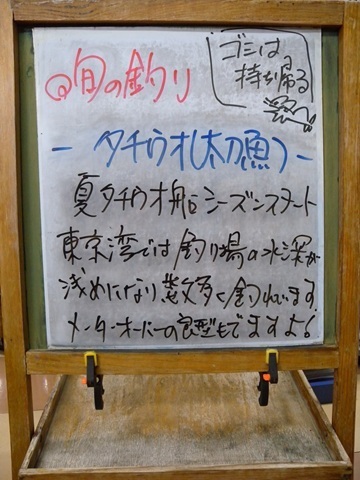 ◎旬の釣り
ゴミは
持ち帰る
- タチウオ(太刀魚) -
夏タチウオ船シーズンスタート
東京湾では釣り場の水深が
浅めになり数多く釣れています
メーターオーバーの良型もでますよ!